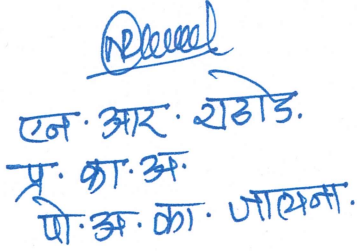 एन. आर. राठोड.
प्र. का. अ.
पो. अ. का. जालना.